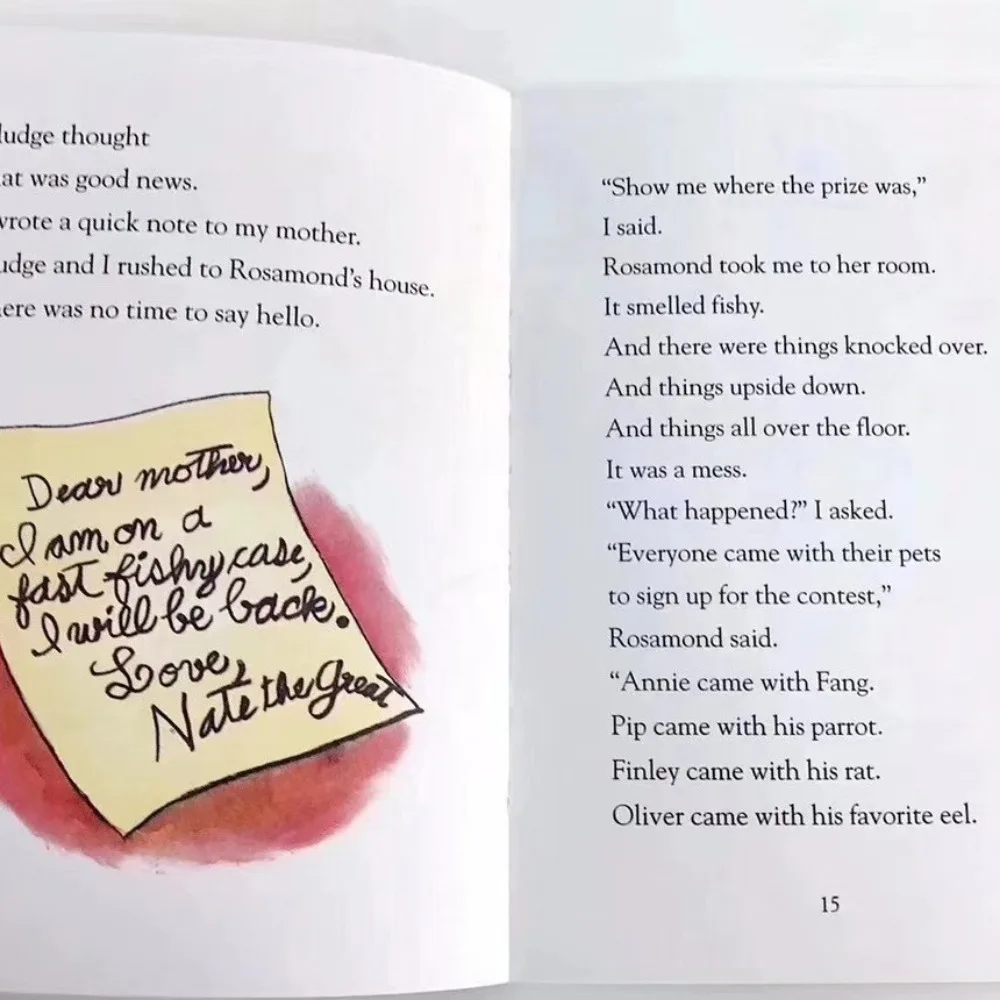 ludge thought
at was good news.
wrote a quick note to my mother.
udge and I rushed to Rosamond's house.
ere was no time to say hello.
Dear mother,
I am on a
fast fishy case,
I will be back.
Love,
Nate the Great
“Show me where the prize was,”
I said.
Rosamond took me to her room.
It smelled fishy.
And there were things knocked over.
And things upside down.
And things all over the floor.
It was a mess.
“What happened?” I asked.
“Everyone came with their pets
to sign up for the contest,”
Rosamond said.
“Annie came with Fang.
Pip came with his parrot.
Finley came with his rat.
Oliver came with his favorite eel.
15